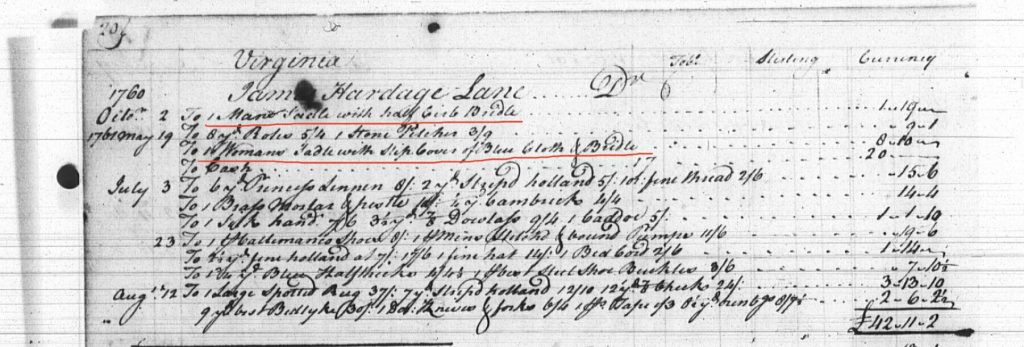 20
Virginia Tobo. Sterling Currency
1760 James Hardage Lane Dr
Octor. 2 To 1 Mans Sadle with half Curb Bridle 1 " 19 "
1761 May 19 To 8 yds Roles 5/4 1 Stone Pitcher 3/9 " 9 " 1
To 1 Womans Sadle with Slip Cover of Blue Cloth & Bridle 8 " 10 "
To Cash 20
July 3 To 6 yd Princess Linnen 8/: 2 yds Striped holland 5/: fine thread 2/6 " 15 " 6
To 1 Brass Mortar & pestle 10/: yd Cambrick 4/4 " 14 " 4
To 1 Silk hand. 7/6 3½ yds Dowlass 9/4 1 Caddoe 5/: 1 " 1 " 10
23 To 1 pr Callemanco Shoes 8/: 1 pr Mens Stitchd & bound Pumps 11/6 " 19 " 6
To 2½ yds fine holland at 7/: 17/6 1 fine hat 14/: 1 Bed Cord 2/6 1 " 14 "
To yds Blue Halfthicks 1 pr best Steel Shoe Buckles 3/6 " 7 " 10½
Augt. 12 To 1 Large Spotted Rug 37/: 7 yds Striped holland 12/10 12 yds Checks 24/: 3 " 13 " 10
9 yds best Bedtyke 30/: 1 Doz: Knives & forks 6/4 1 ps Tape 2 " 6 " 2½
£42 " 11 " 2